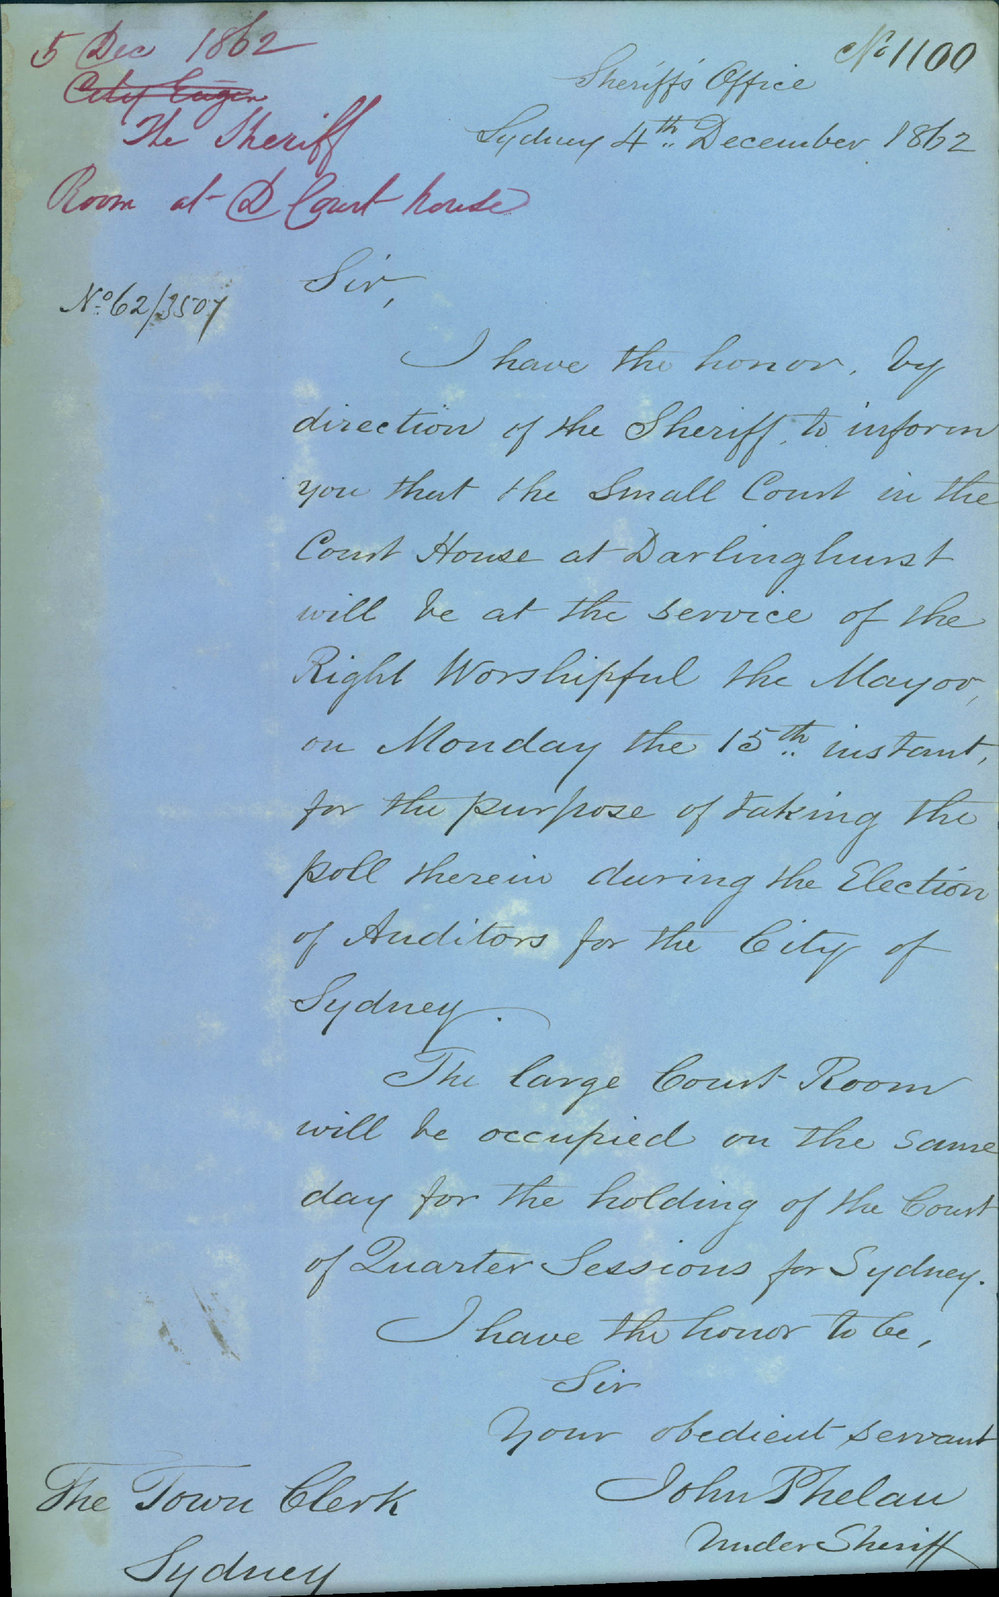 5 Dec 1862
City Engin
The Sheriff
Room at D Court house
No 1100
Sheriff's Office
Sydney 4th December 1862
No 62/3507
Sir,
I have the honor, by
direction of the Sheriff, to inform
you that the Small Court in the
Court House at Darlinghurst
will be at the service of the
Right Worshipful the Mayor,
on Monday the 15th instant,
for the purpose of taking the
poll therein during the Election
of Auditors for the City of
Sydney.
The large Court Room
will be occupied on the same
day for the holding of the Court
of Quarter Sessions for Sydney.
I have the honor to be,
Sir
Your obedient servant
John Phelan
Under Sheriff
The Town Clerk
Sydney